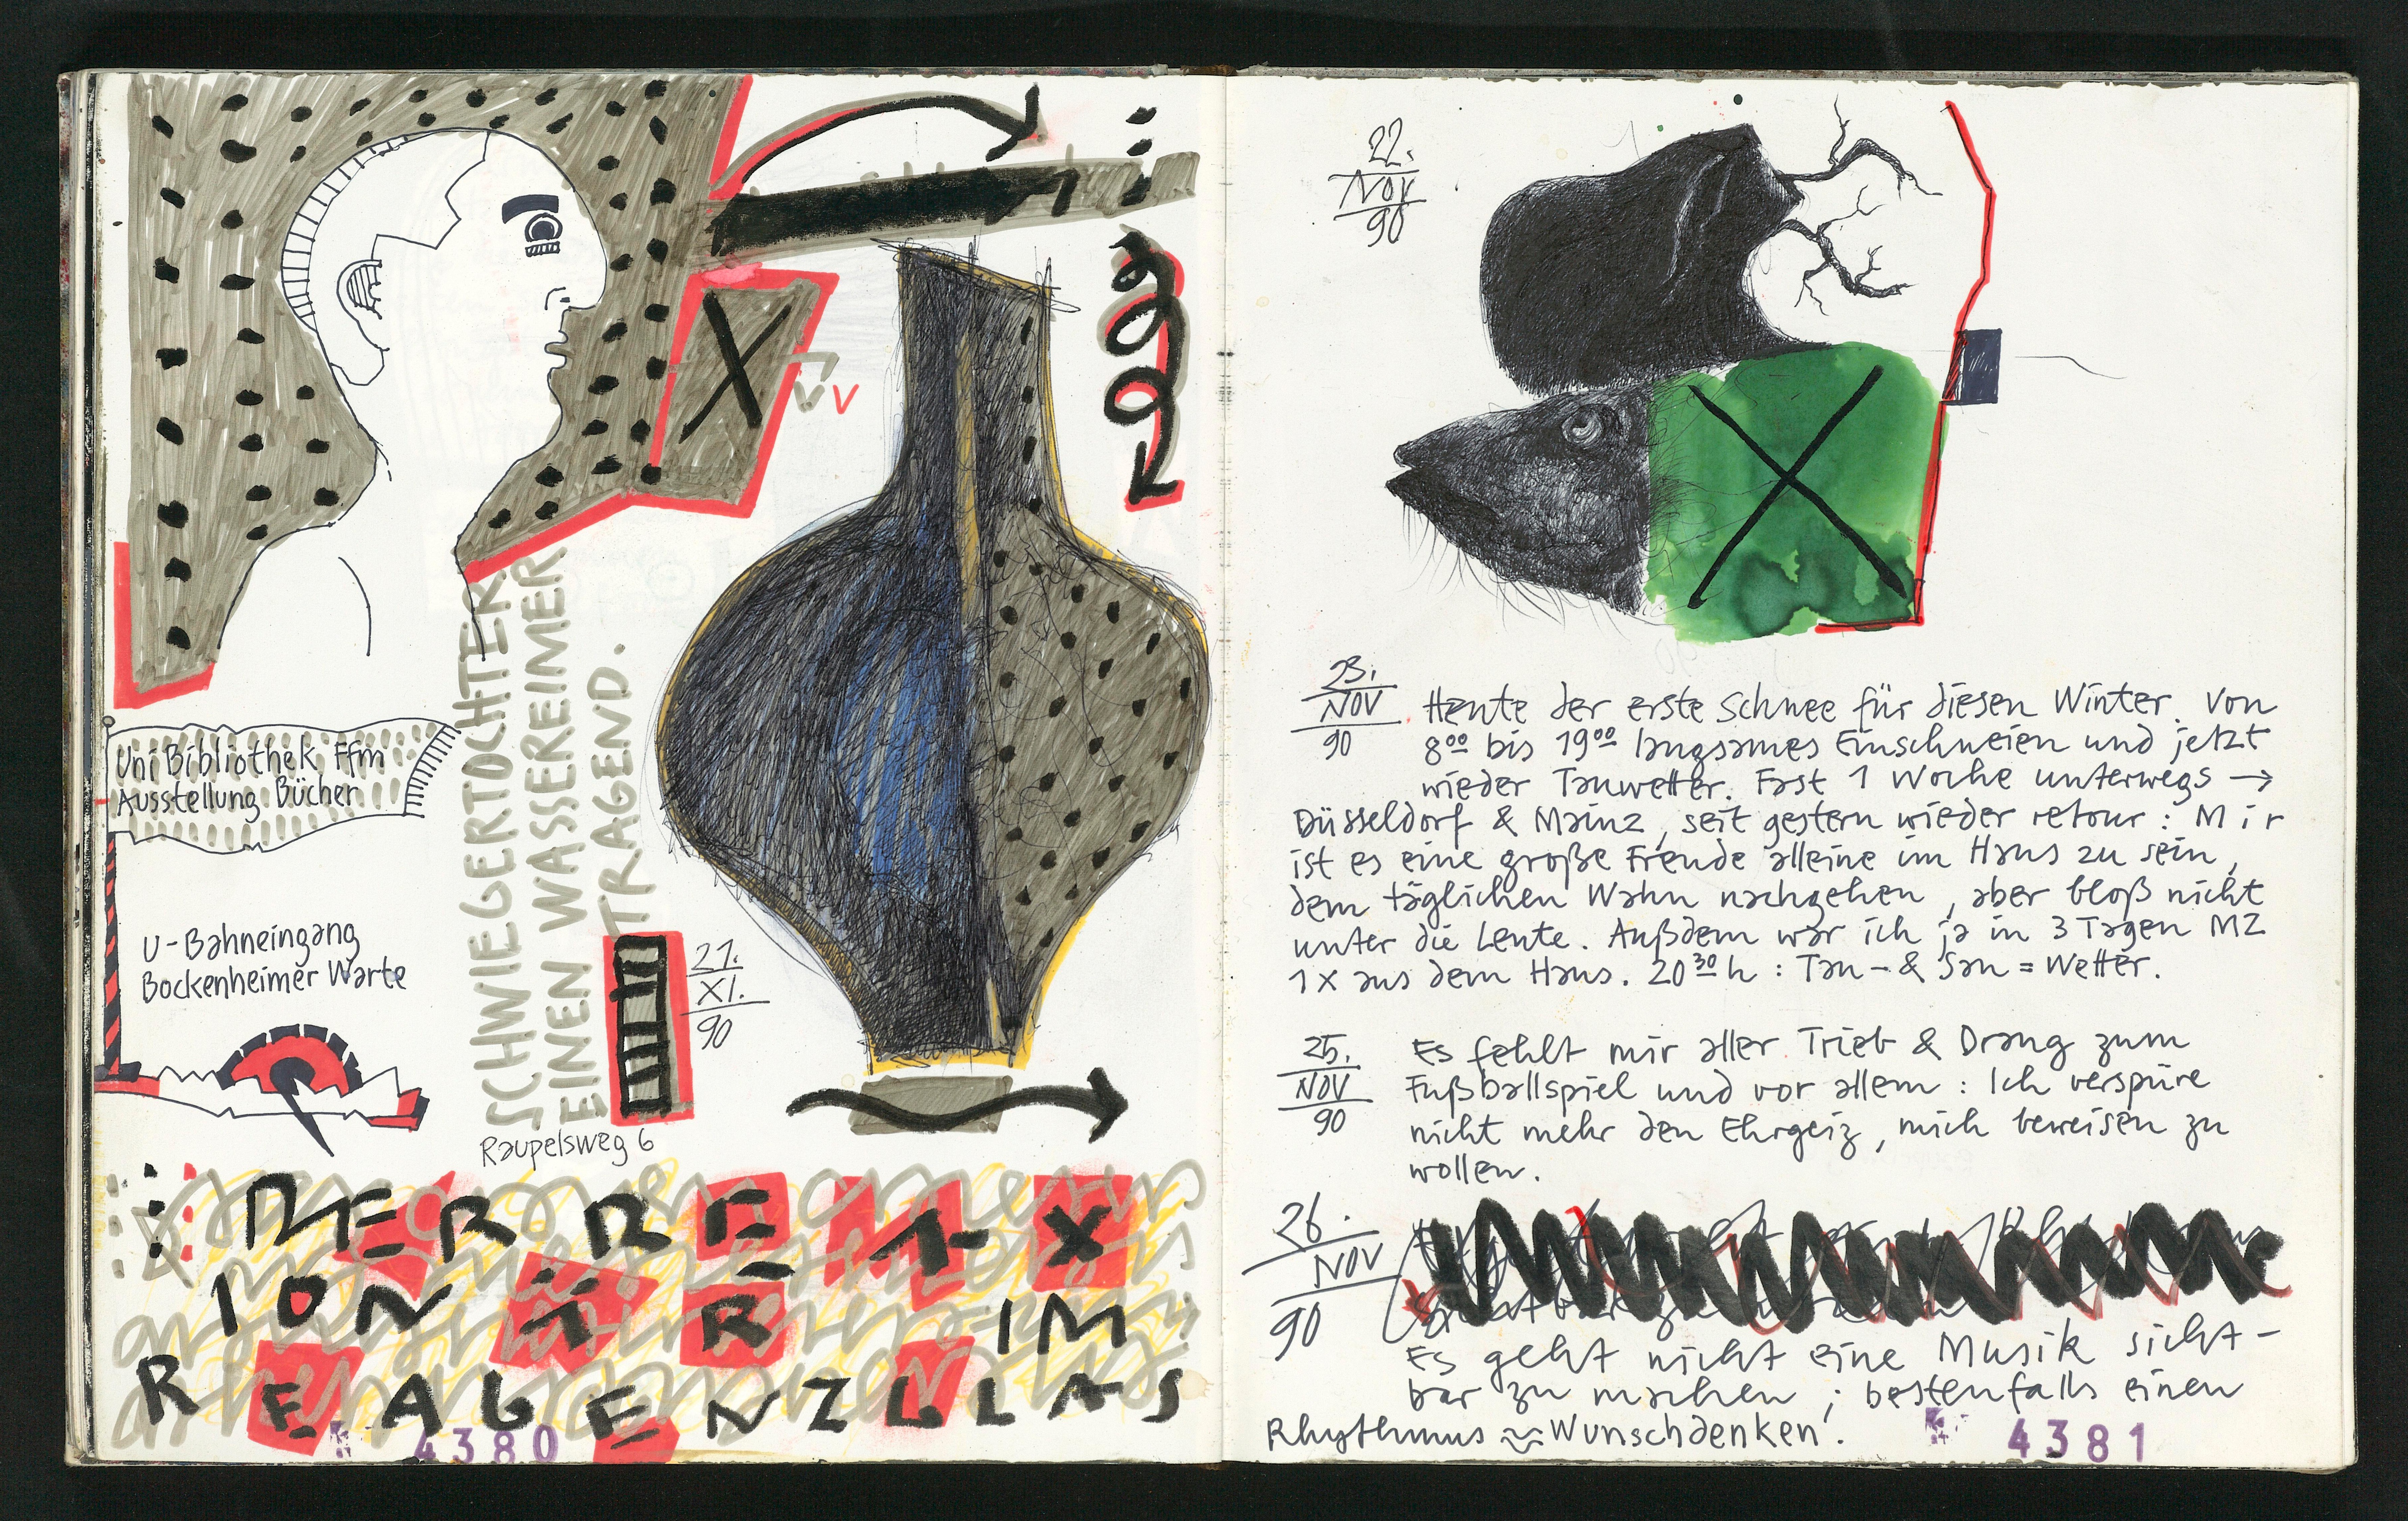 Uni Bibliothek Ffm
Ausstellung Bücher
U-Bahneingang
Bockenheimer Warte
SCHWIEGERTOCHTER
EINEN WASSEREIMER
TRAGEND.
21.
XI.
90
Raupelsweg 6
DER REAK
IONÄR IM
REAGENZGLAS
4380
22.
NOV
90
23.
NOV
90
Heute der erste Schnee für diesen Winter. Von
8⁰⁰ bis 19⁰⁰ langsames Einschneien und jetzt
wieder Tauwetter. Fast 1 Woche unterwegs →
Düsseldorf & Mainz, seit gestern wieder retour: Mir
ist es eine große Freude alleine im Haus zu sein,
dem täglichen Wahn nachgehen, aber bloß nicht
unter die Leute. Außdem war ich ja in 3 Tagen MZ
1x aus dem Haus. 20³⁰h: Tau- & Sau=Wetter.
25.
NOV
90
Es fehlt mir aller Trieb & Drang zum
Fußballspiel und vor allem: Ich verspüre
nicht mehr den Ehrgeiz, mich beweisen zu
wollen.
26.
NOV
90
Es geht nicht eine Musik sicht-
bar zu machen; bestenfalls einen
Rhythmus ≈ Wunschdenken!
4381